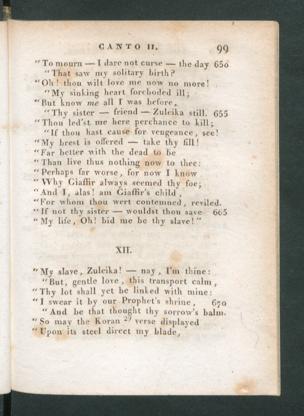 CANTO II. 99
"To mourn — I dare not curse — the day 650
"That saw my solitary birth?
"Oh! thou wilt love me now no more!
"My sinking heart forboded ill;
"But know me all I was before,
"Thy sister — friend — Zuleika still. 655
"Thou led'st me here perchance to kill;
"If thou hast cause for vengeance, see!
"My brest is offered — take thy fill!
"Far better with the dead to be
"Than live thus nothing now to thee:
"Perhaps far worse, for now I know
"Why Giaffir always seemed thy foe;
"And I, alas! am Giaffir's child,
"For whom thou wert contemned, reviled.
"If not thy sister — wouldst thou save 665
"My life, Oh! bid me be thy slave!"
XII.
"My slave, Zuleika! — nay, I'm thine:
"But, gentle love, this transport calm,
"Thy lot shall yet be linked with mine:
"I swear it by our Prophet's shrine, 670
"And be that thought thy sorrow's balm.
"So may the Koran 27 verse displayed
"Upon its steel direct my blade,